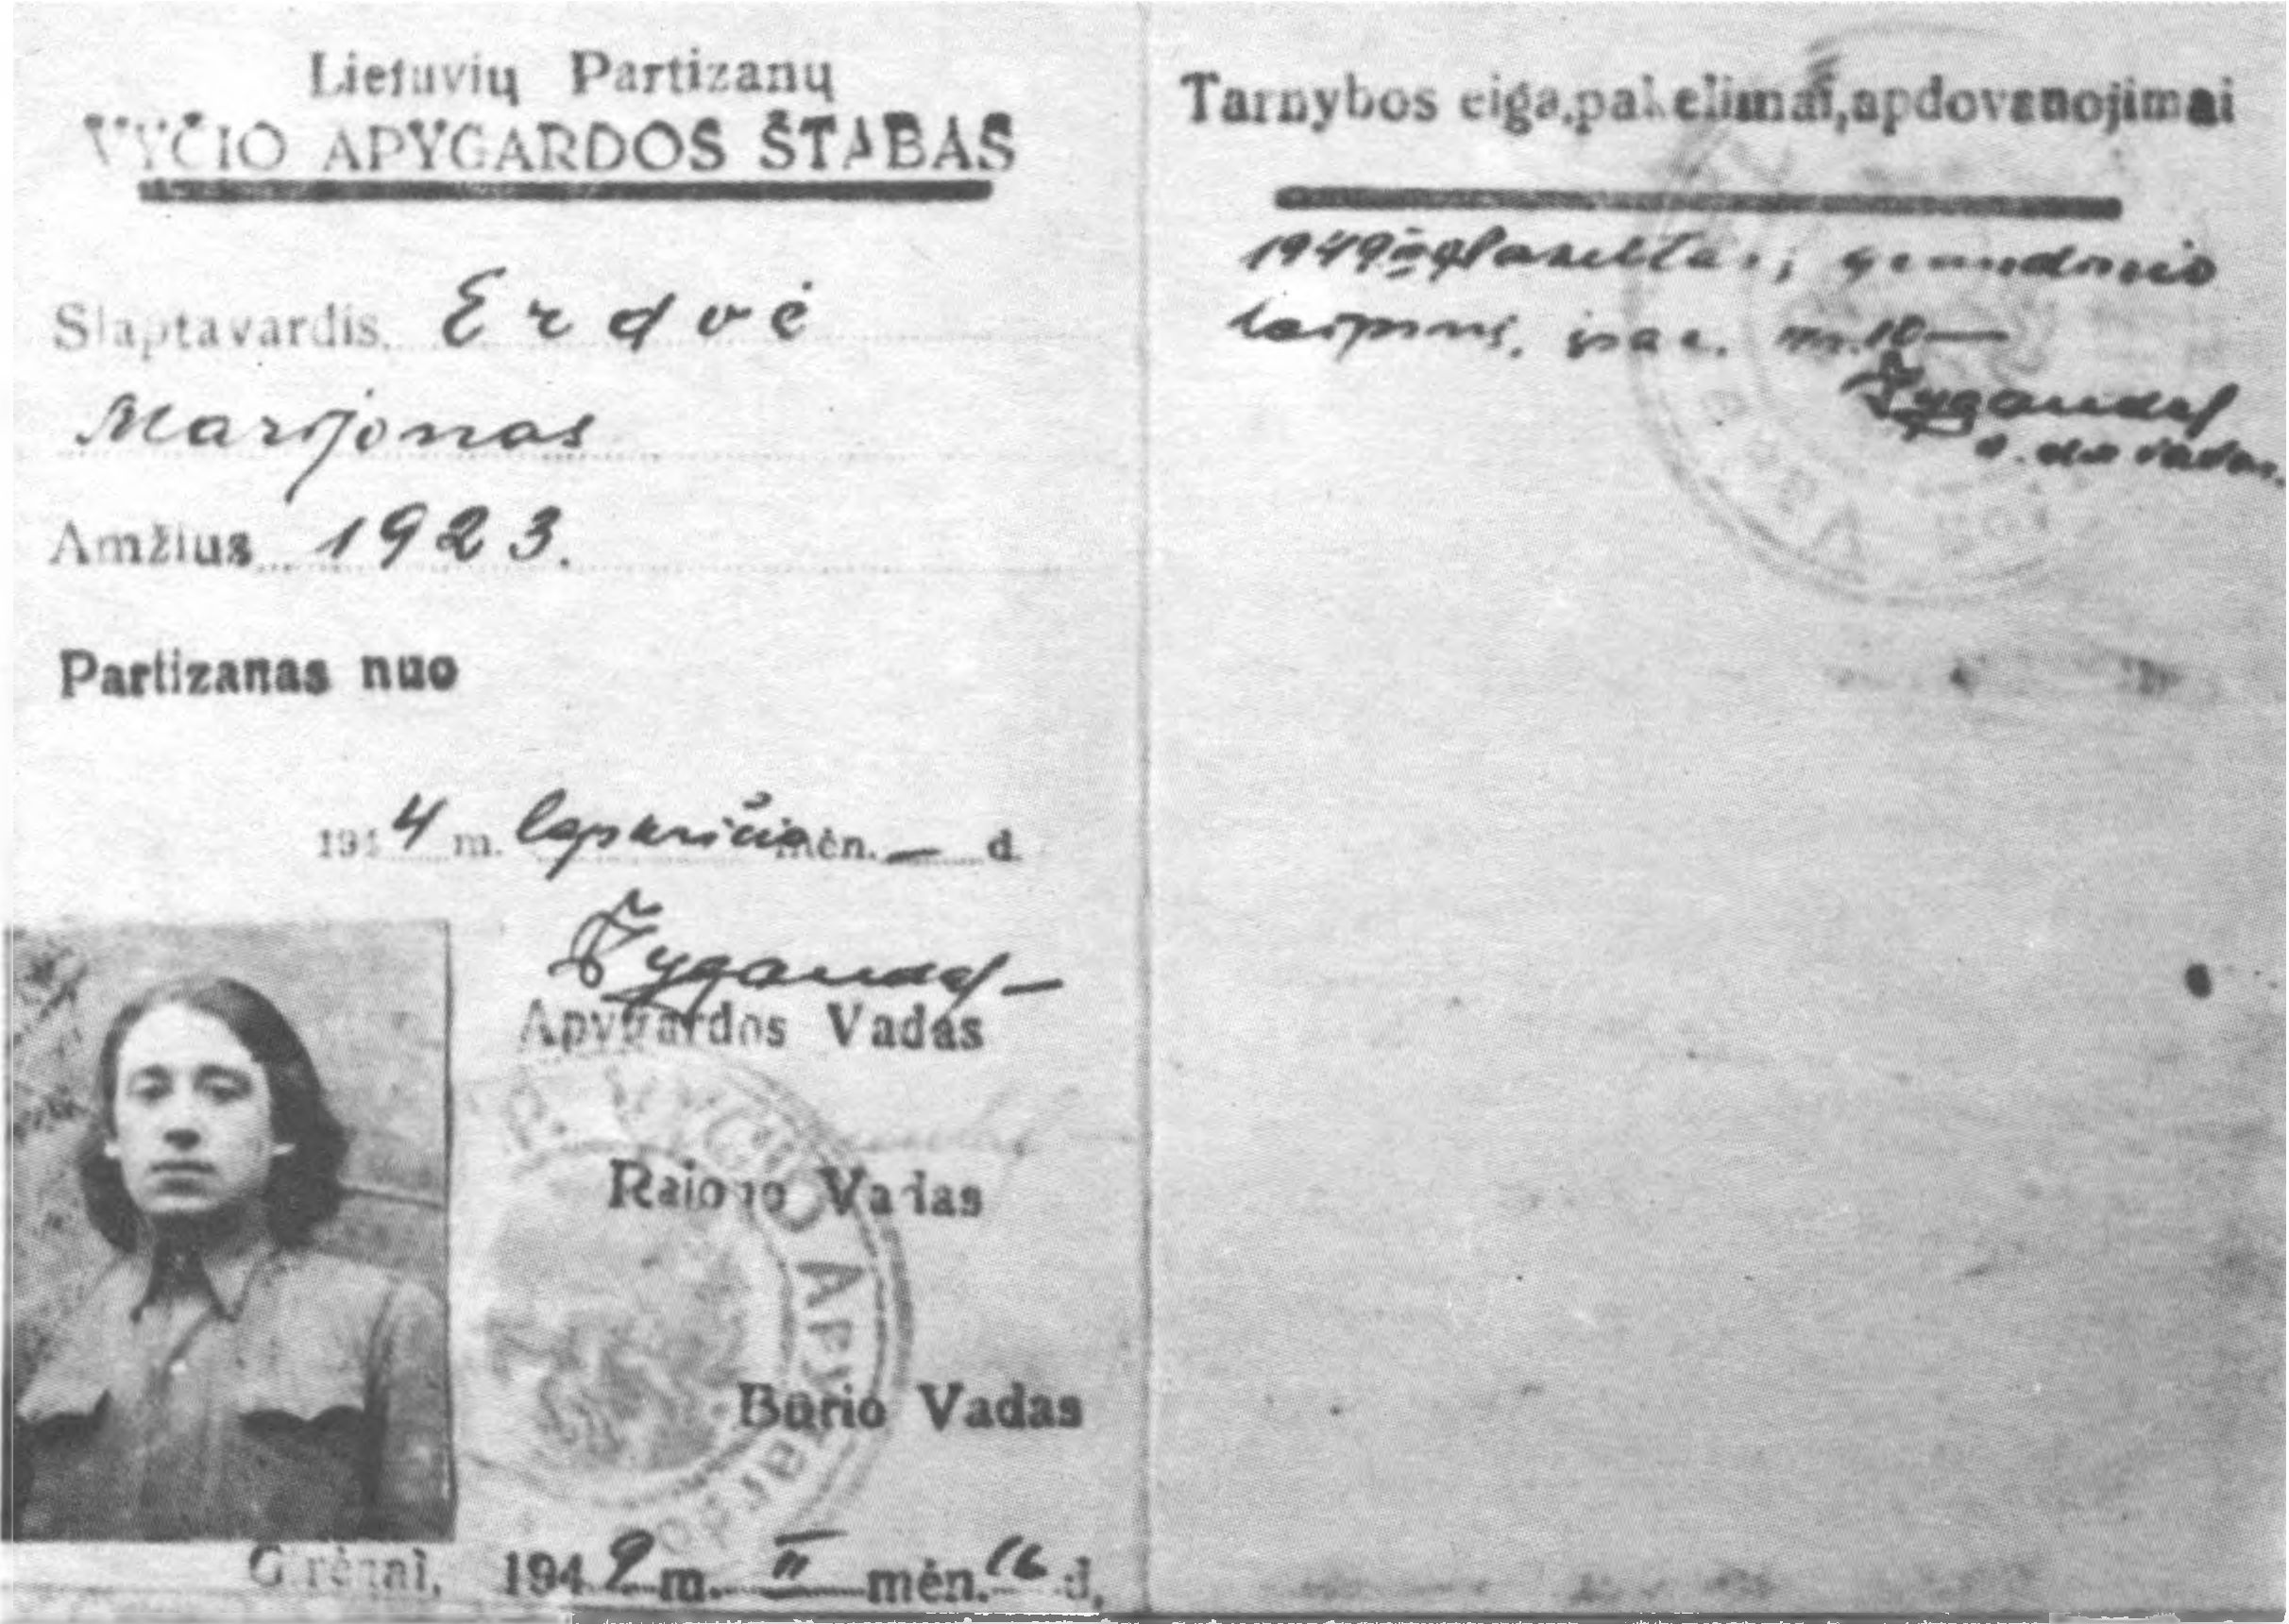 Lietuvių Partizanų
VYČIO APYGARDOS ŠTABAS
Slaptavardis. Erdvė
Marijonas
Amžius 1923.
Partizanas nuo
1944 m. lapkričio mėn. — d.
Žygaudas —
Apygardos Vadas
Raiono Vadas
Būrio Vadas
Girėnai, 1949 m. II mėn. 16 d.
VYČIO APYGARDO
Tarnybos eiga, pakėlimai, apdovanojimai
1949 Pakeltas į grandinio
laipsnį, įsak. nr. 10 —
Žygaudas
vadas.